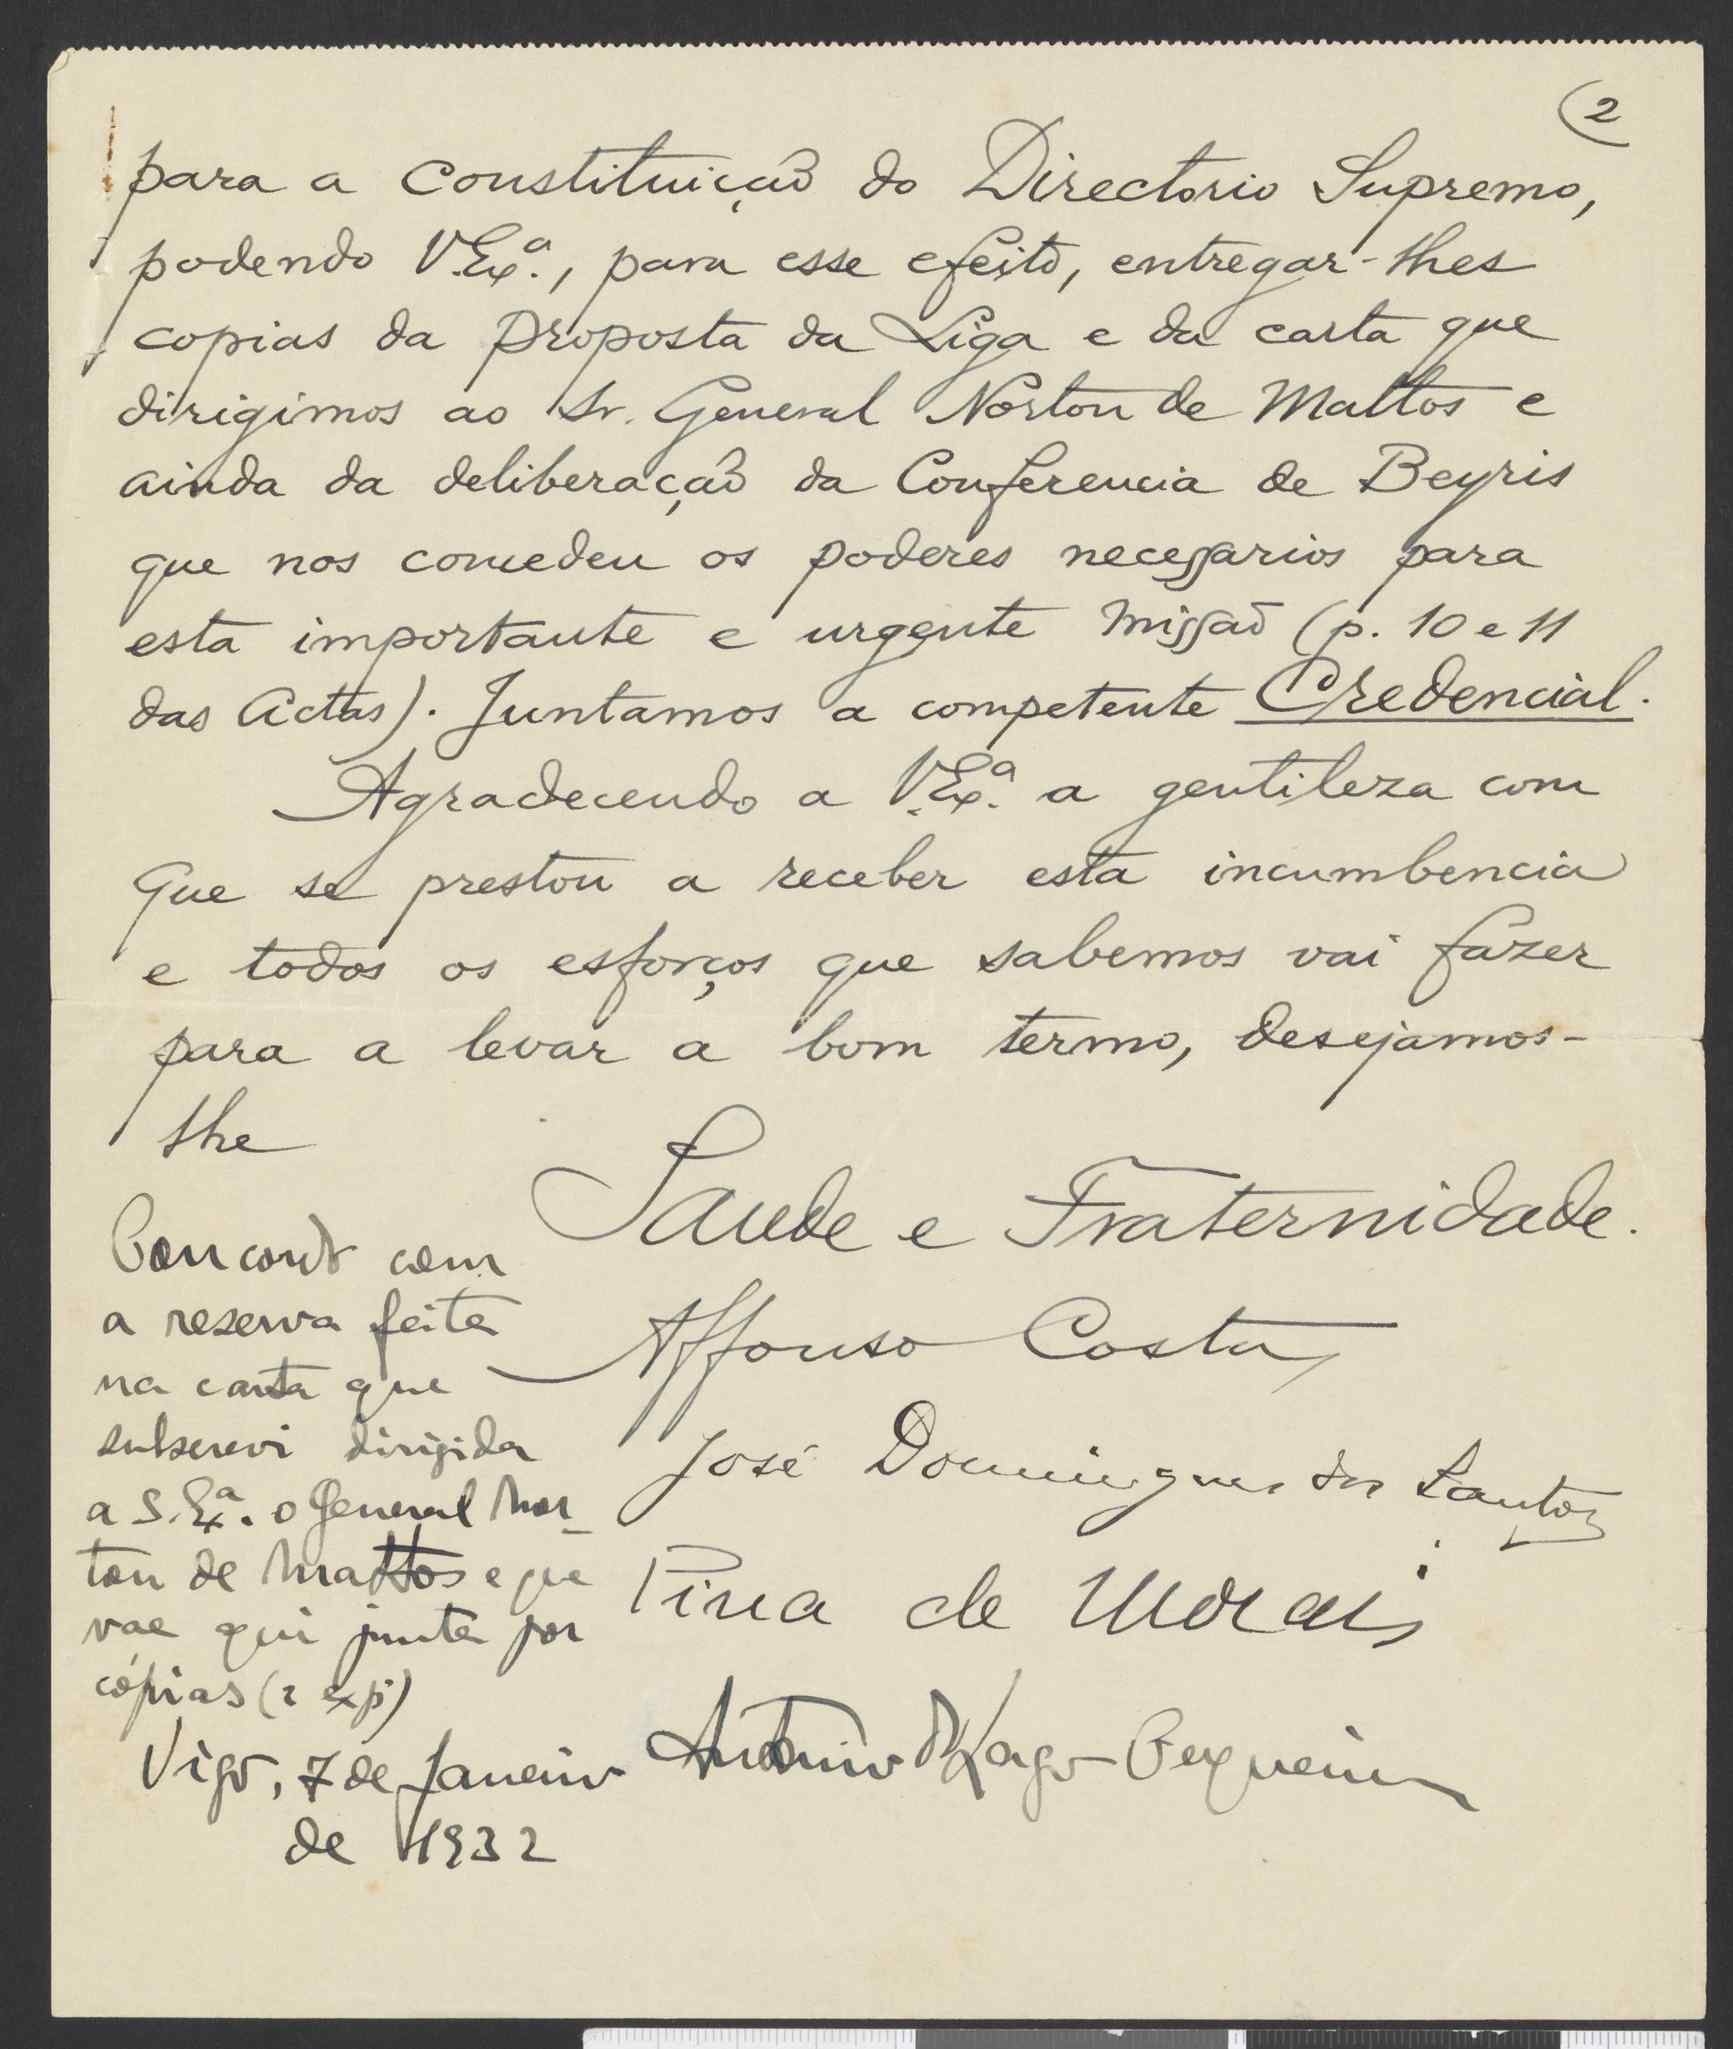 2
para a constituição do Directorio Supremo,
podendo V. Ex.ª, para esse efeito, entregar-lhes
copias da proposta da Liga e da carta que
dirigimos ao Sr. General Norton de Mattos e
ainda da deliberação da Conferencia de Beyris
que nos concedeu os poderes necessarios para
esta importante e urgente missão (p. 10 e 11
das Actas). Juntamos a competente Credencial.
Agradecendo a V. Ex.ª a gentileza com
que se prestou a receber esta incumbencia
e todos os esforços que sabemos vai fazer
para a levar a bom termo, desejamos-
lhe
Saude e Fraternidade.
Affonso Costa
José Domingues dos Santos
Pina de Morais
Antonio Lago Cerqueira
Concordo com
a reserva feita
na carta que
subscrevi dirigida
a S. Ex.ª o General Nor-
ton de Mattos e que
vae qui junta por
cópias (2 exp)
Vigo, 7 de Janeiro
de 1932